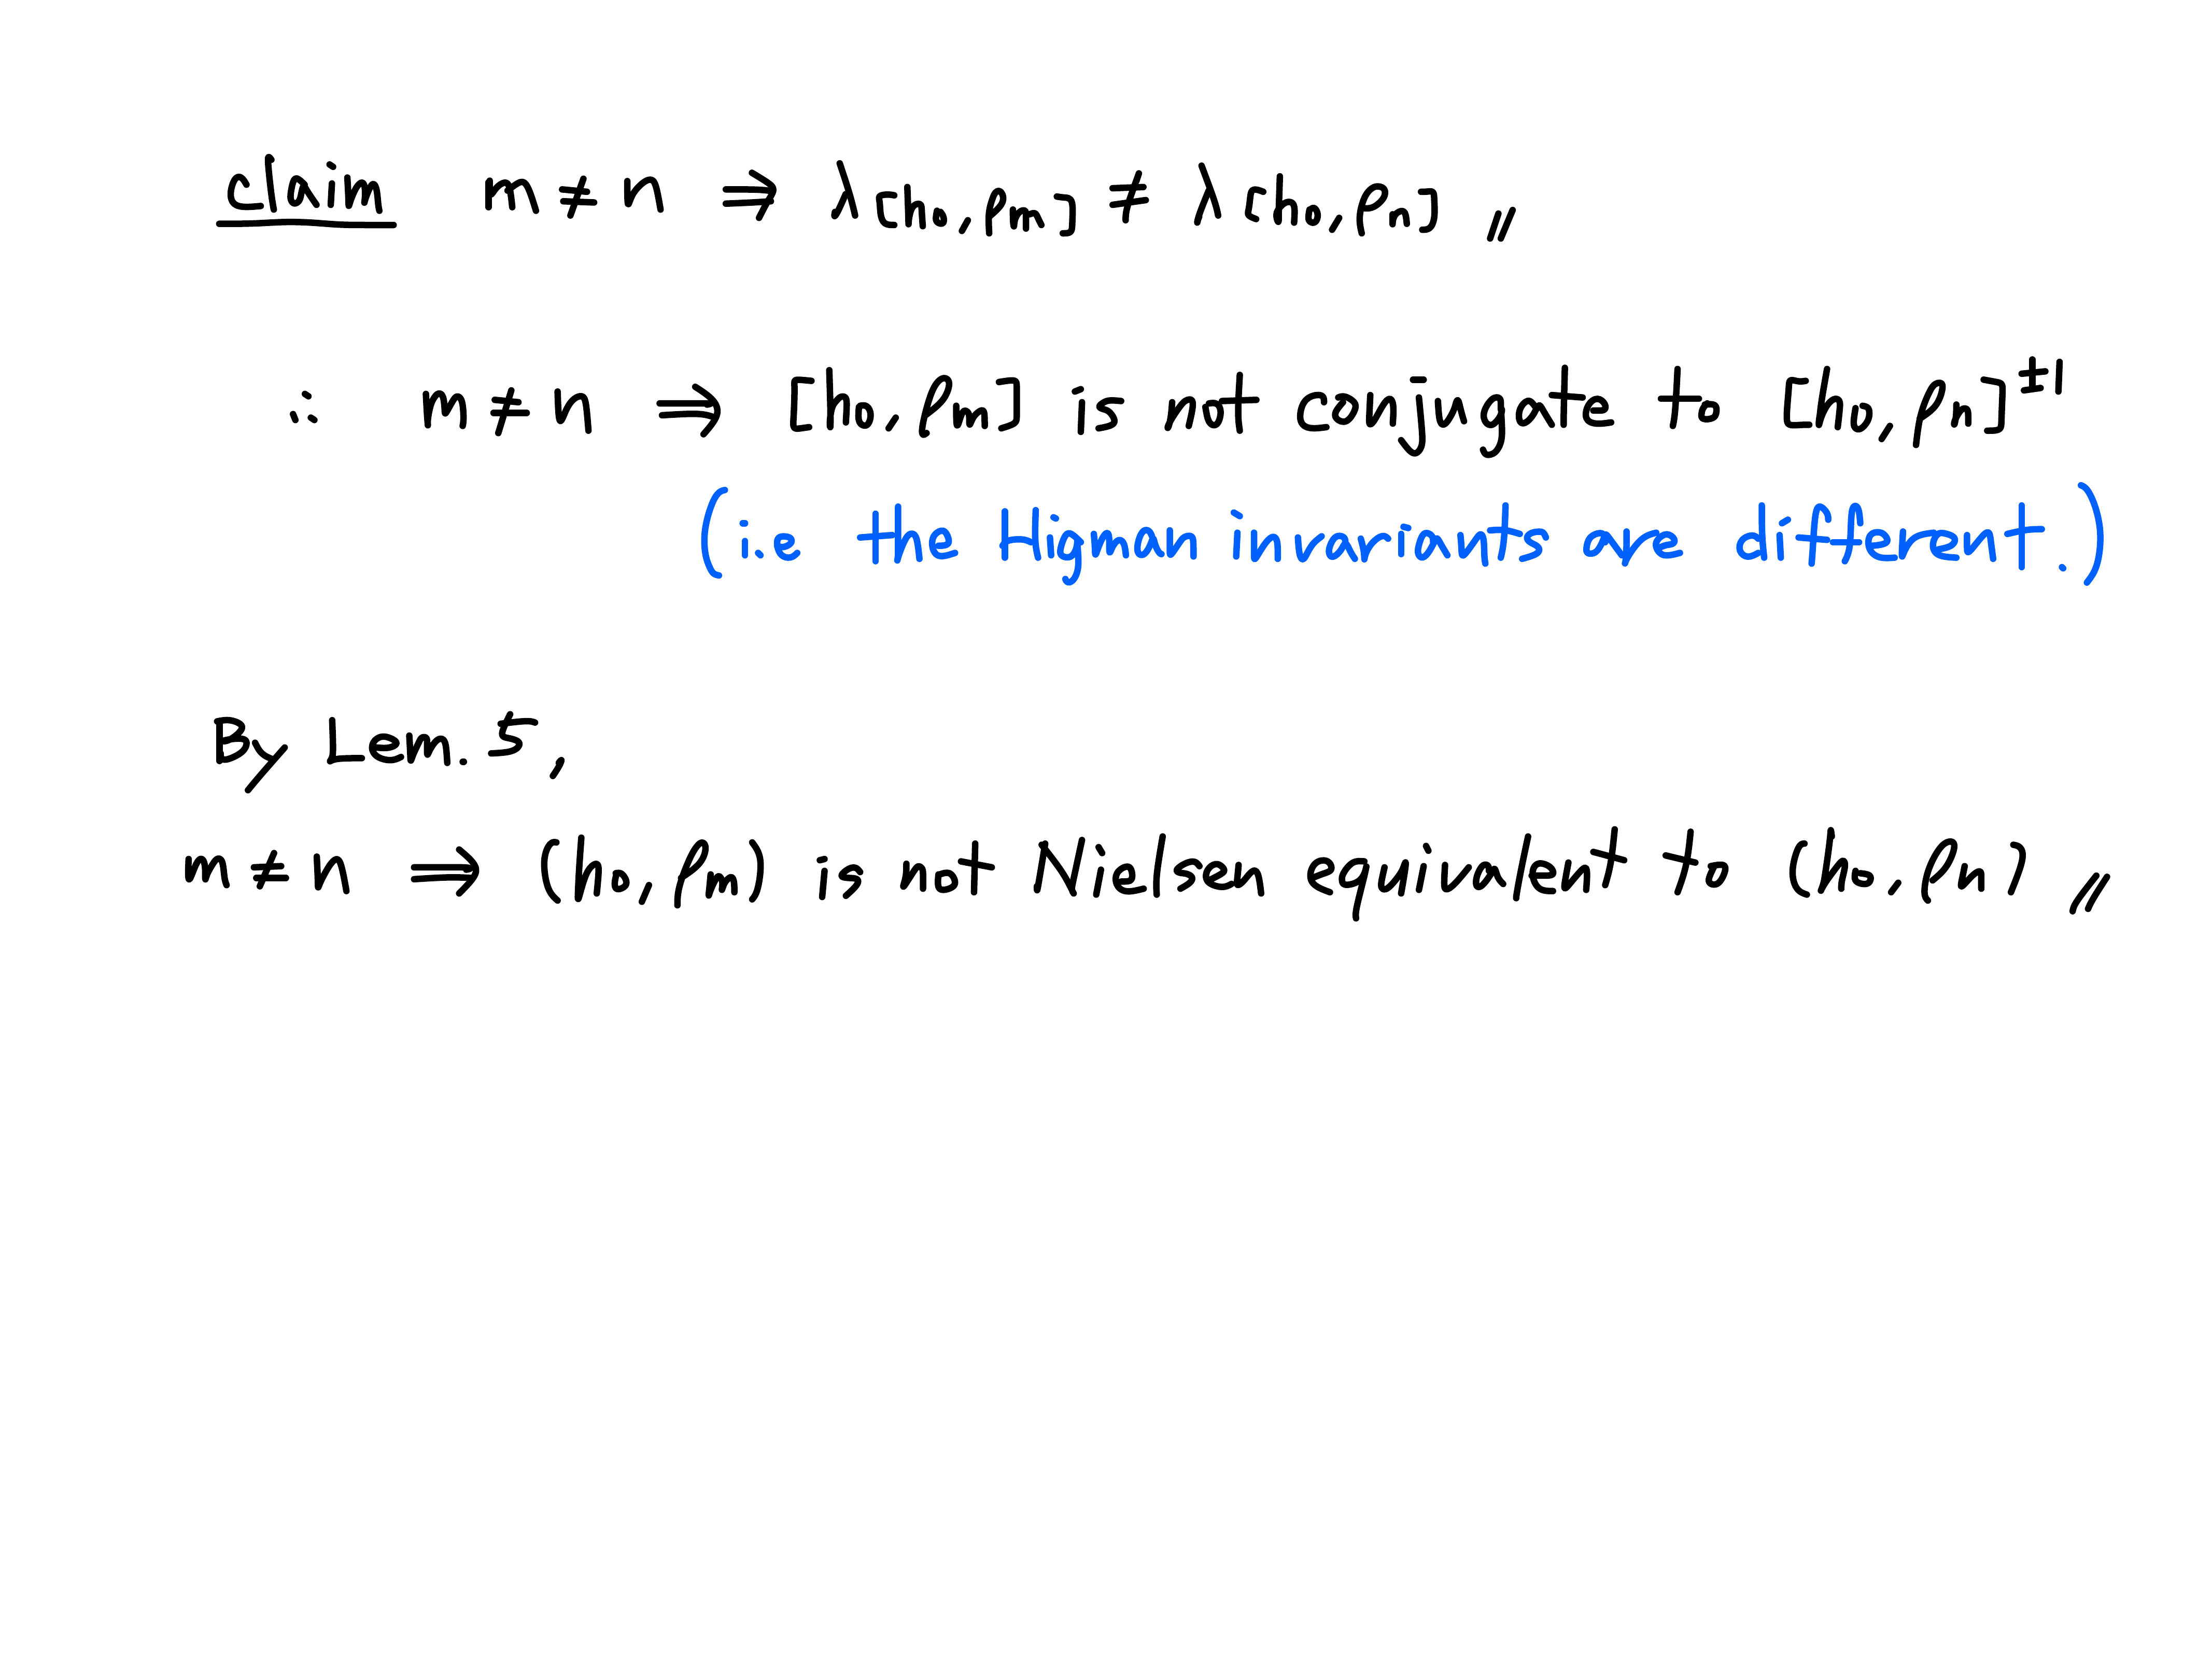 claim m ≠ n ⇒ λ[h₀, ρₘ] ≠ λ[h₀, ρₙ] 〃
∴ m ≠ n ⇒ [h₀, ρₘ] is not conjugate to [h₀, ρₙ]^±1
(i.e the Higman invariants are different.)
By Lem. 5,
m ≠ n ⇒ (h₀, ρₘ) is not Nielsen equivalent to (h₀, ρₙ) 〃